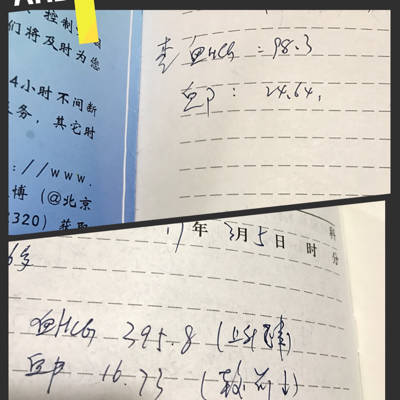 控制
们将及时为您
4小时不间断
务,其它时
://www.
博(@北京
2320)获取
查血HCG:98.3
血P:24.64.
年3月5日 时 分
科
血HCG 395.8(上升
血P 16.73(较前↓)